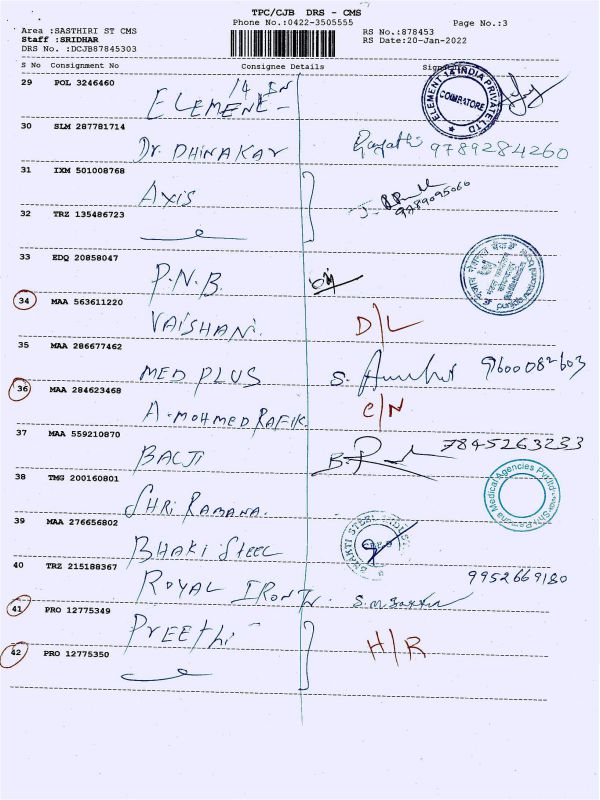 TPC/CJB DRS - CMS
Phone No.:0422-3505555
Page No.:3
Area :SASTHIRI ST CMS
Staff :SRIDHAR
DRS No. :DCJB87845303
RS No.:878453
RS Date:20-Jan-2022
S No Consignment No Consignee Details
29 POL 3246460
ELEMENE 14 IN
ELEMENT 14 INDIA PRIVATE LTD
COIMBATORE
30 SLM 287781714
Dr. DHINAKAR 9789284260
31 IXM 501008768
AXIS 9789095066
32 TRZ 135486723
33 EDQ 20858047
P.N.B.
34 MAA 563611220
VAISHANI. D/L
35 MAA 286677462
MED PLUS 9600082603
36 MAA 284623468
A.MOHMED RAFIK. C/N
37 MAA 559210870
BALJI 7845263233
38 TMG 200160801
SHRI RAMANA.
39 MAA 276656802
BHAKI STEEL
40 TRZ 215188367
ROYAL IRON 9952669180
41 PRO 12775349
PREETHI H/R
42 PRO 12775350